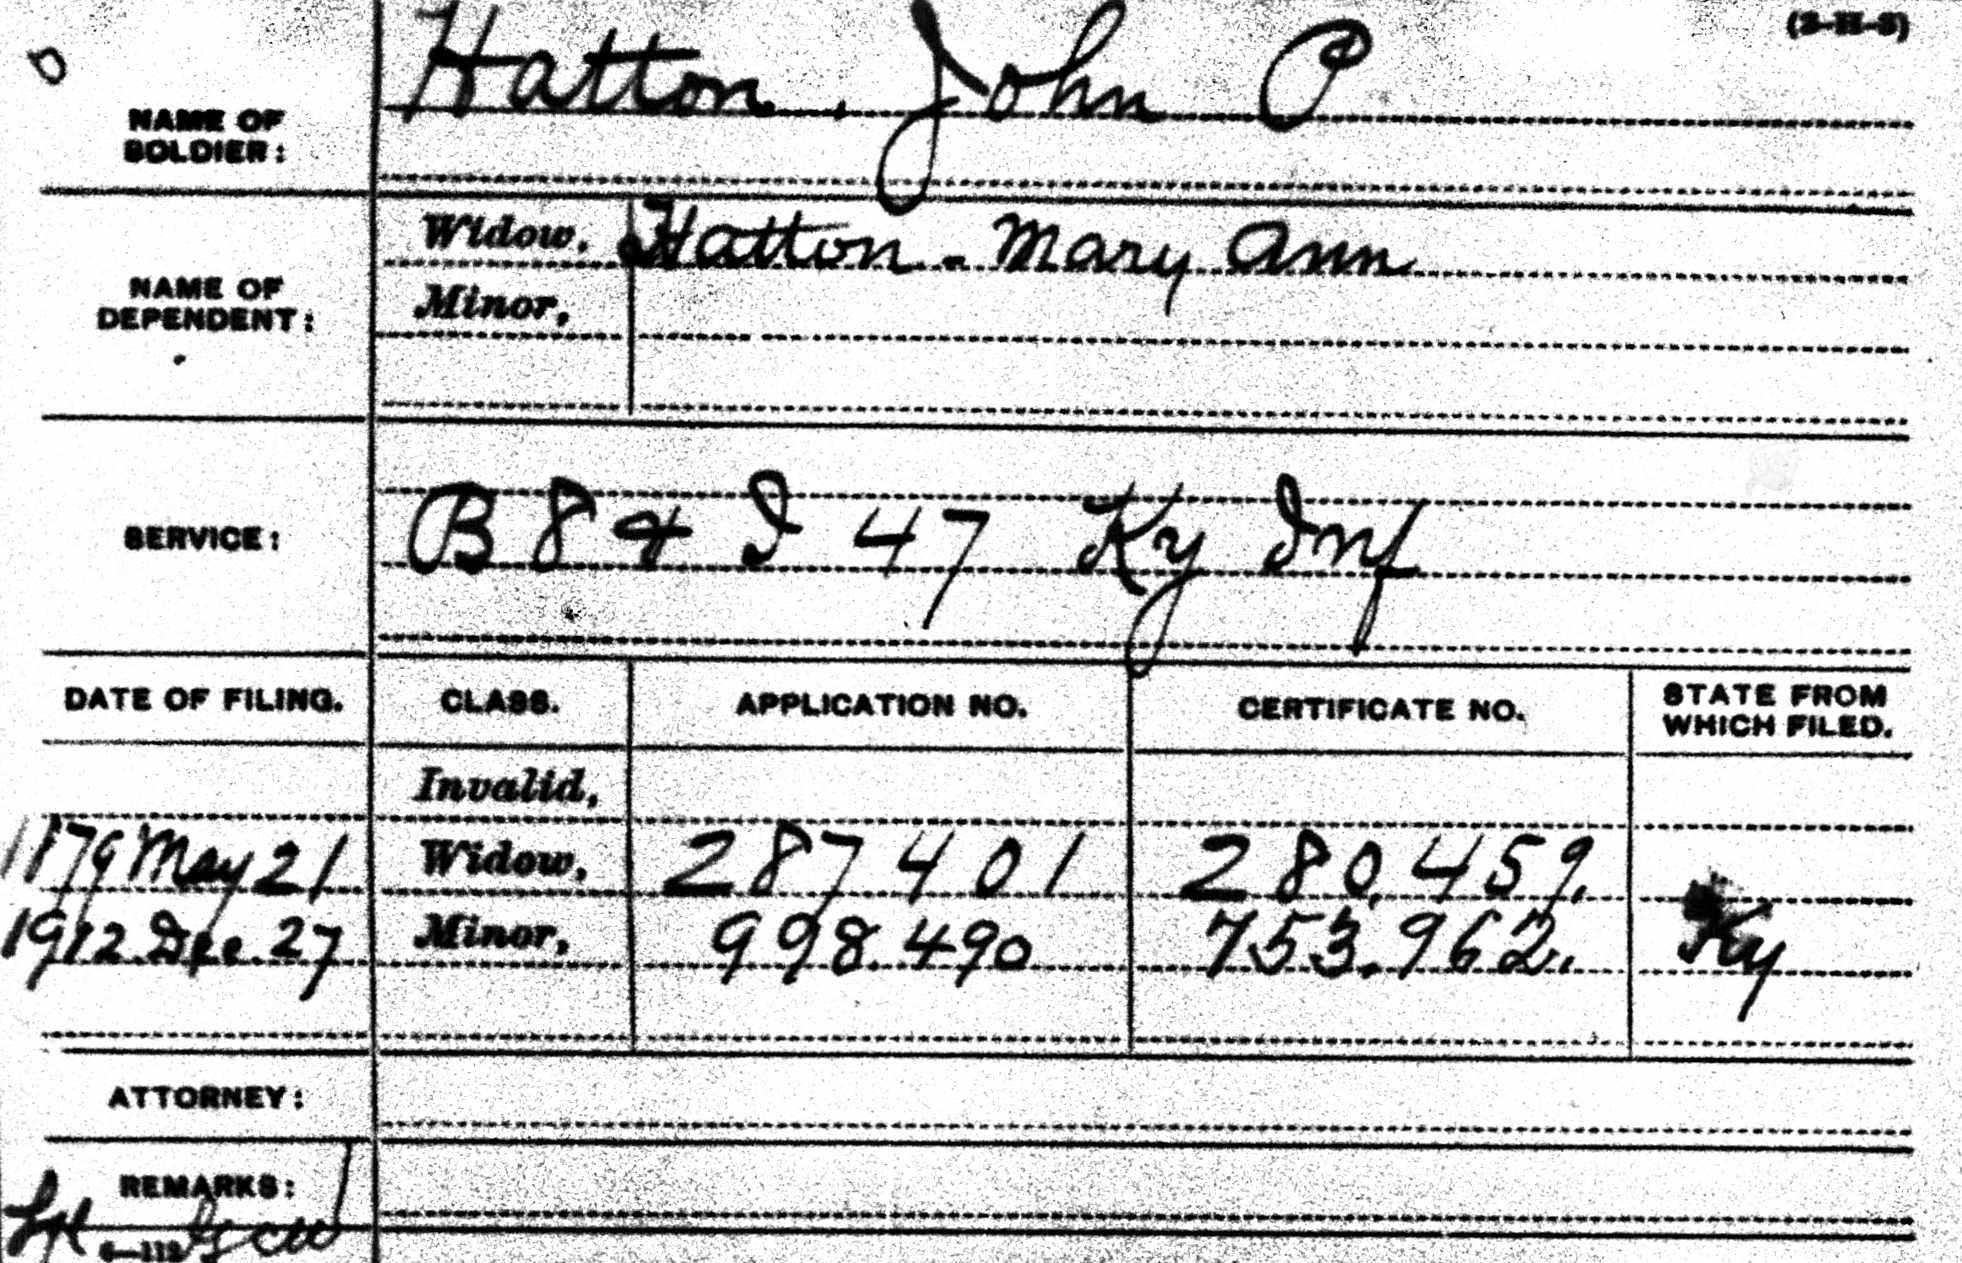 (3-H-3)
Hatton, John P
NAME OF
SOLDIER:
Widow, Hatton - Mary Ann
NAME OF
DEPENDENT:
Minor,
SERVICE: B & I 47 Ky Inf
DATE OF FILING. CLASS. APPLICATION NO. CERTIFICATE NO. STATE FROM
WHICH FILED.
Invalid,
May 21 Widow, 287401 280,459.
1912. Dec. 27 Minor, 998.490 753.962. Ky
ATTORNEY:
REMARKS: